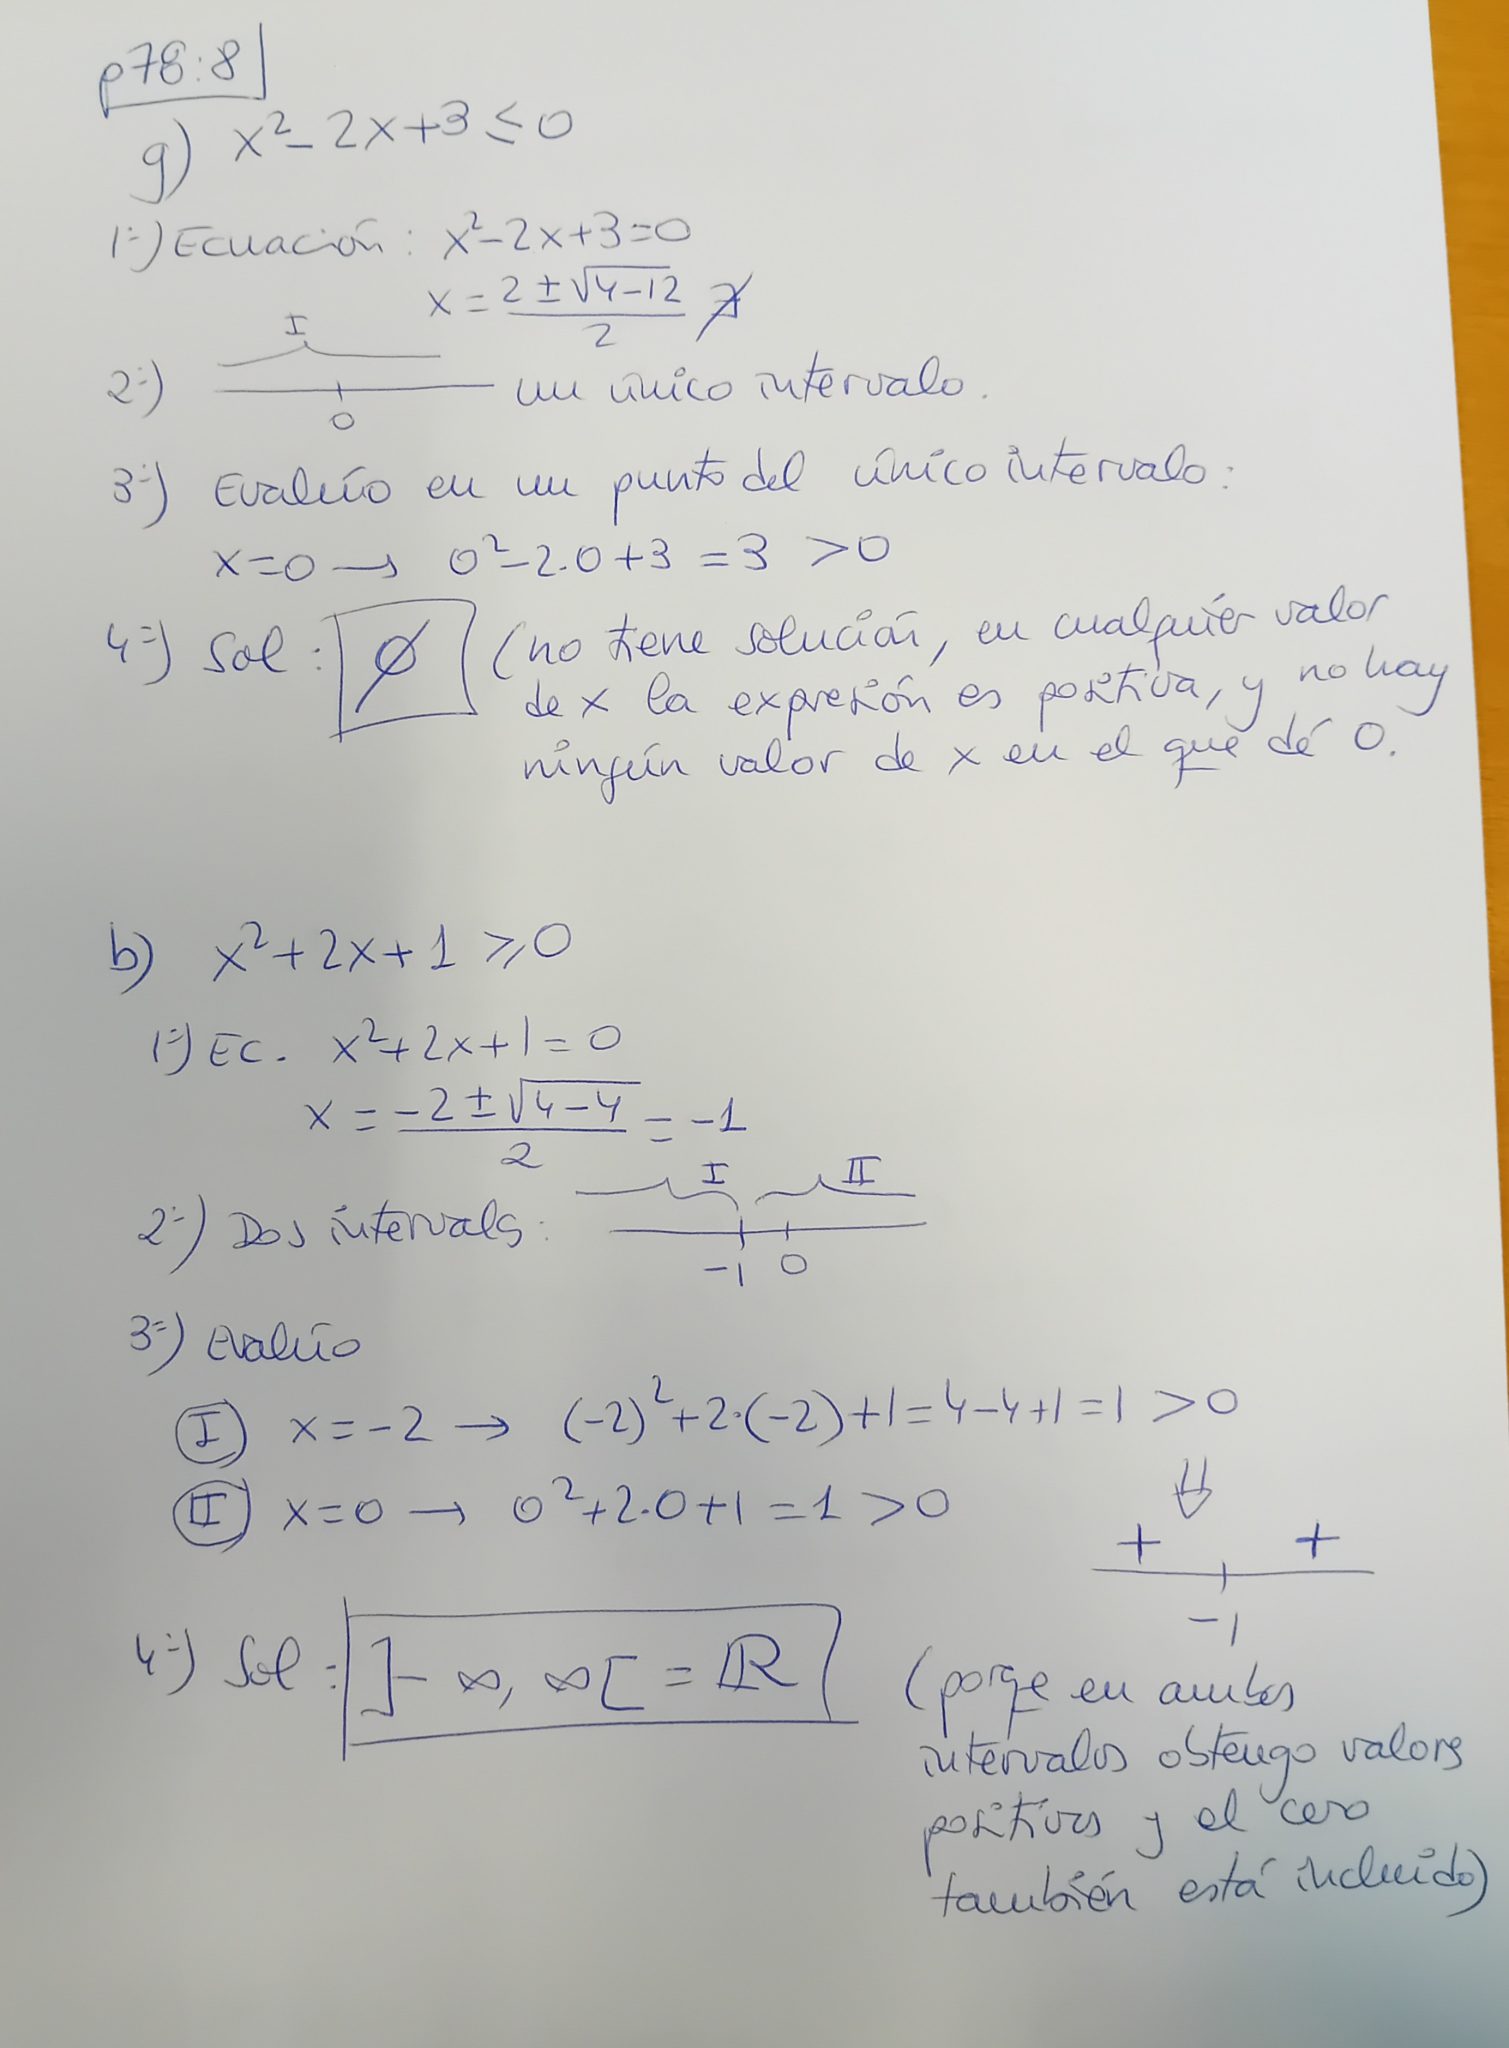 p78:8
g) x² - 2x + 3 ≤ 0
1º) Ecuación: x² - 2x + 3 = 0
x = (2 ± √(4-12))/2 ∄
I
2º) 0 un único intervalo.
3º) Evalúo en un punto del único intervalo:
x=0 → 0² - 2·0 + 3 = 3 > 0
4º) Sol: ∅ (no tiene solución, en cualquier valor
de x la expresión es positiva, y no hay
ningún valor de x en el que dé 0.
b) x² + 2x + 1 ≥ 0
1º) Ec. x² + 2x + 1 = 0
x = (-2 ± √(4-4))/2 = -1
I II
2º) Dos intervalos:
-1 0
3º) Evalúo
I x = -2 → (-2)² + 2·(-2) + 1 = 4 - 4 + 1 = 1 > 0
II x = 0 → 0² + 2·0 + 1 = 1 > 0
⇓
+ +
-1
4º) Sol: ]-∞, ∞[ = ℝ (porqe en ambos
intervalos obtengo valores
positivos y el cero
también está incluido)